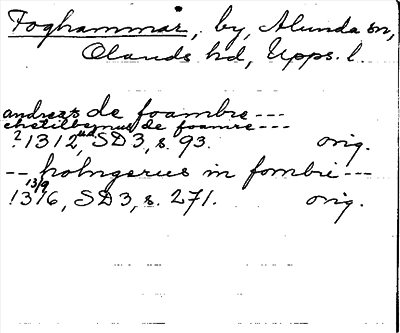 Foghammar, by, Alunda sn,
Olands hd, Upps. l.
andreas de foambre ---
chetilbernus de foamre ---
? 1312 u.d., SD 3, s. 93. orig.
-- holmgerus in fombre ---
13/9
1316, SD 3, s. 271. orig.